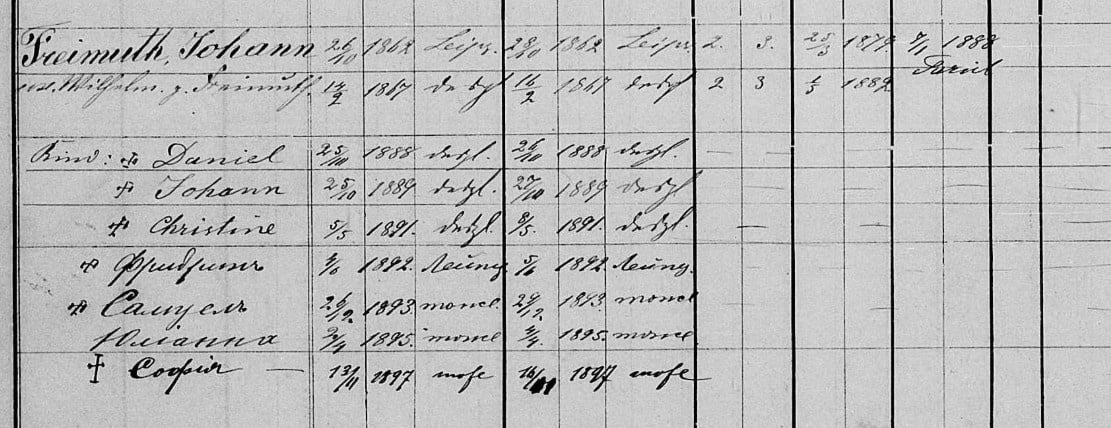 Freimuth, Johann 26/10 1862 Leipz. 28/10 1862 Leipz. 2. 3. 25/3 1879 7/1 1888
Wilhelm. g. Freimuth. 14/2 1867 desgl 16/2 1867 desgl 2 3 1882
Kind: Daniel 25/10 1888 desgl. 26/10 1888 desgl.
Johann 25/10 1889 desgl 27/10 1889 desgl
Christine 5/5 1891. desgl. 8/5. 1891. desgl.
Фридрихъ 1892. Лейпц. 1892. Лейпц.
Самуелъ 26/12. 1893. тоже 29/12. 1893. тоже
Юліанна 2/4 1895. тоже 4/4. 1895. тоже
Софія — 13/11 1897 тоже 16/11 1897 тоже